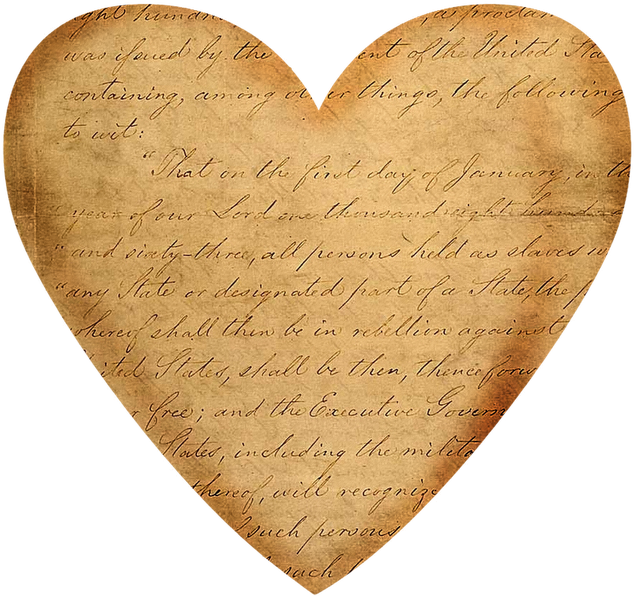 ght hundr , a proclam
was issued by the ent of the United Sta
containing, among other things, the following
to wit:
"That on the first day of January, in th
"year of our Lord one thousand eight hund
"and sixty-three, all persons held as slaves w
"any State or designated part of a State, the p
whereof shall then be in rebellion against
ited States, shall be then, thencefor
r free; and the Executive Govern
States, including the milita
thereof, will recognize
such persons
such